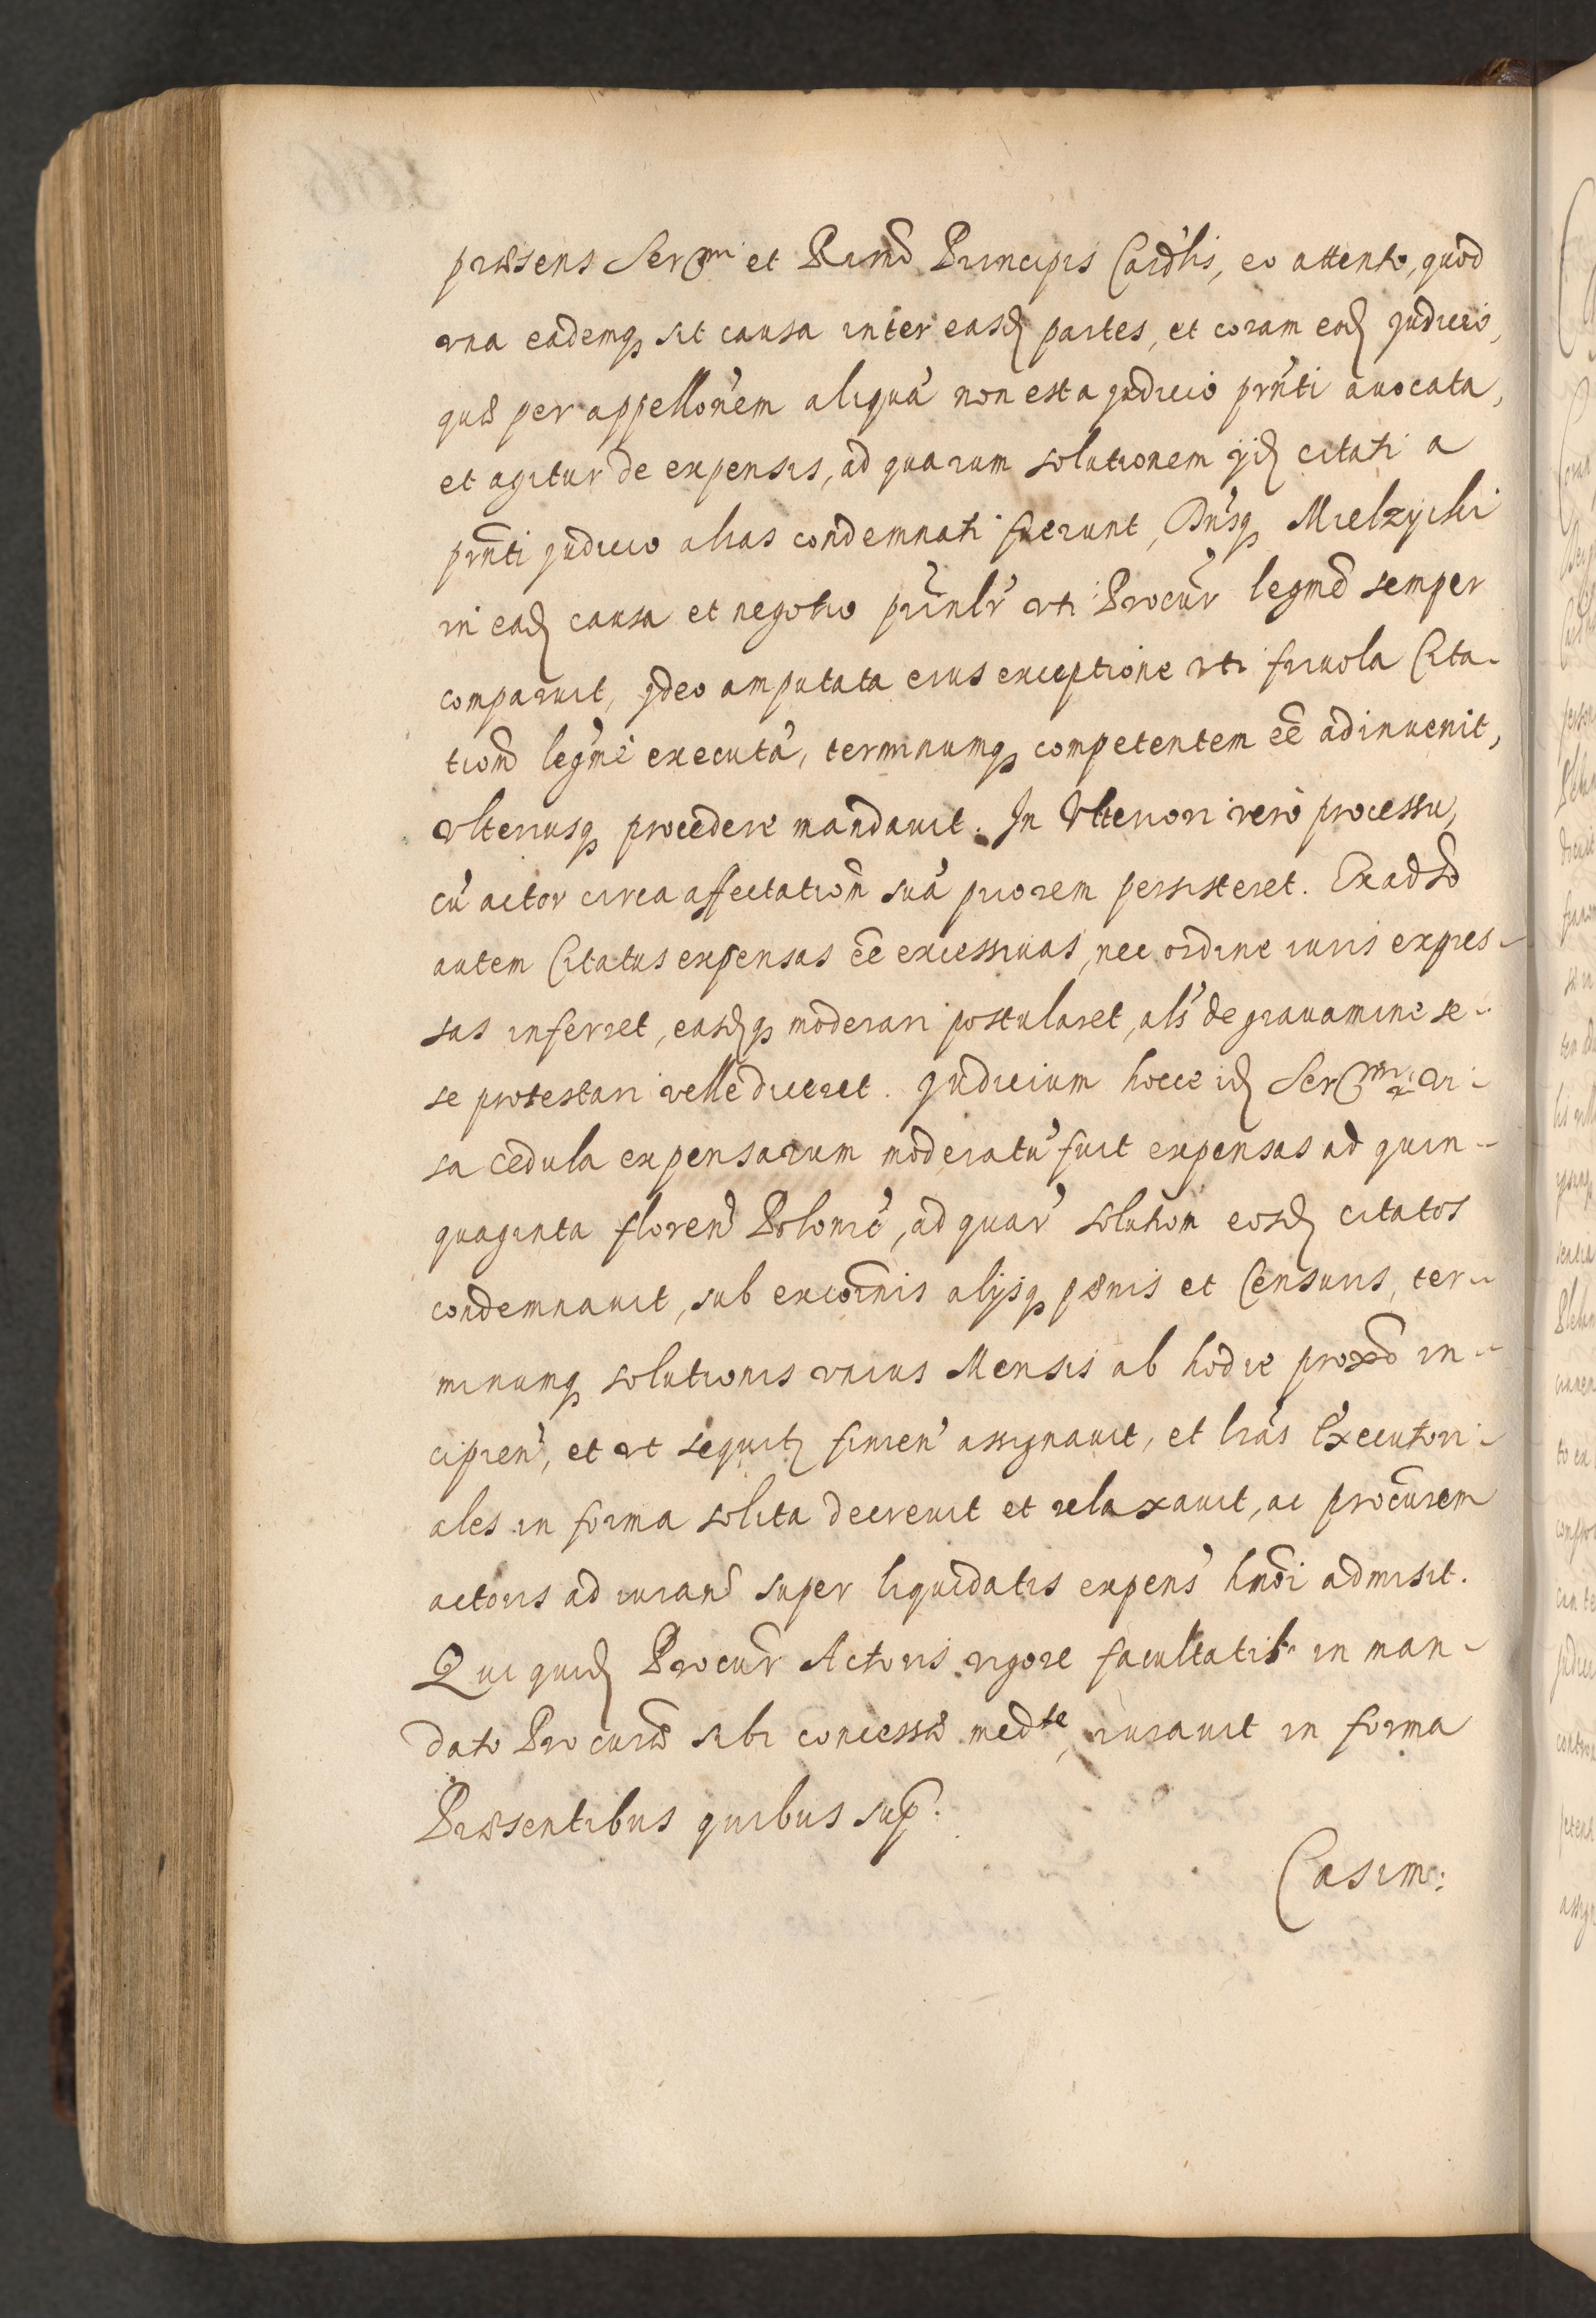 præsens Serᵐⁱ et Rimd Principis Cardlis, eo attento, quod
vna eademq sit causa inter easd partes, et coram eod judicio,
quæ per appellonem aliquá non est a judicio prnti auocata,
et agitur de expensis, ad quarum solutionem ijd citati a
prnti judicio alias condemnati fuerunt, Dnsq Mielzycki
in ead causa et negotio prinlr vti Procur legmé semper
comparuit, jdeo amputata eius exceptione vti friuola Cita-
tiond legmé executá, terminumq competentem ee adinuenit,
vlteriusq procedere mandauit. In Vlteriori vero processu,
cú actor circa affectation suá priorem persisteret. Ex adso
autem Citatus expensas ee excessiuas, nec ordine iuris expres-
sas inferret, easdq moderari postularet, als de grauamine se-
se protestari velle diceret. judicium hocce id Serᵐⁱ vi-
sa cedula expensarum moderatú fuit expensas ad quin-
quaginta floren Polonic, ad quar solution eosd citatos
condemnauit, sub excoinis alijsq pænis et Censuris, ter-
minumq solutionis vnius Mensis ab hodie proxo in-
cipien, et vt sequit finien assignauit, et lras Executori-
ales in forma solita decreuit et relaxauit, ac procurem
actoris ad iuran super liquidatis expens hmoi admisit.
Qui quid Procur Actoris vigore facultatis in man-
dato Procuræ sibi concessæ medᵗᵉ, iurauit in forma
Præsentibus quibus sup.
Casim: